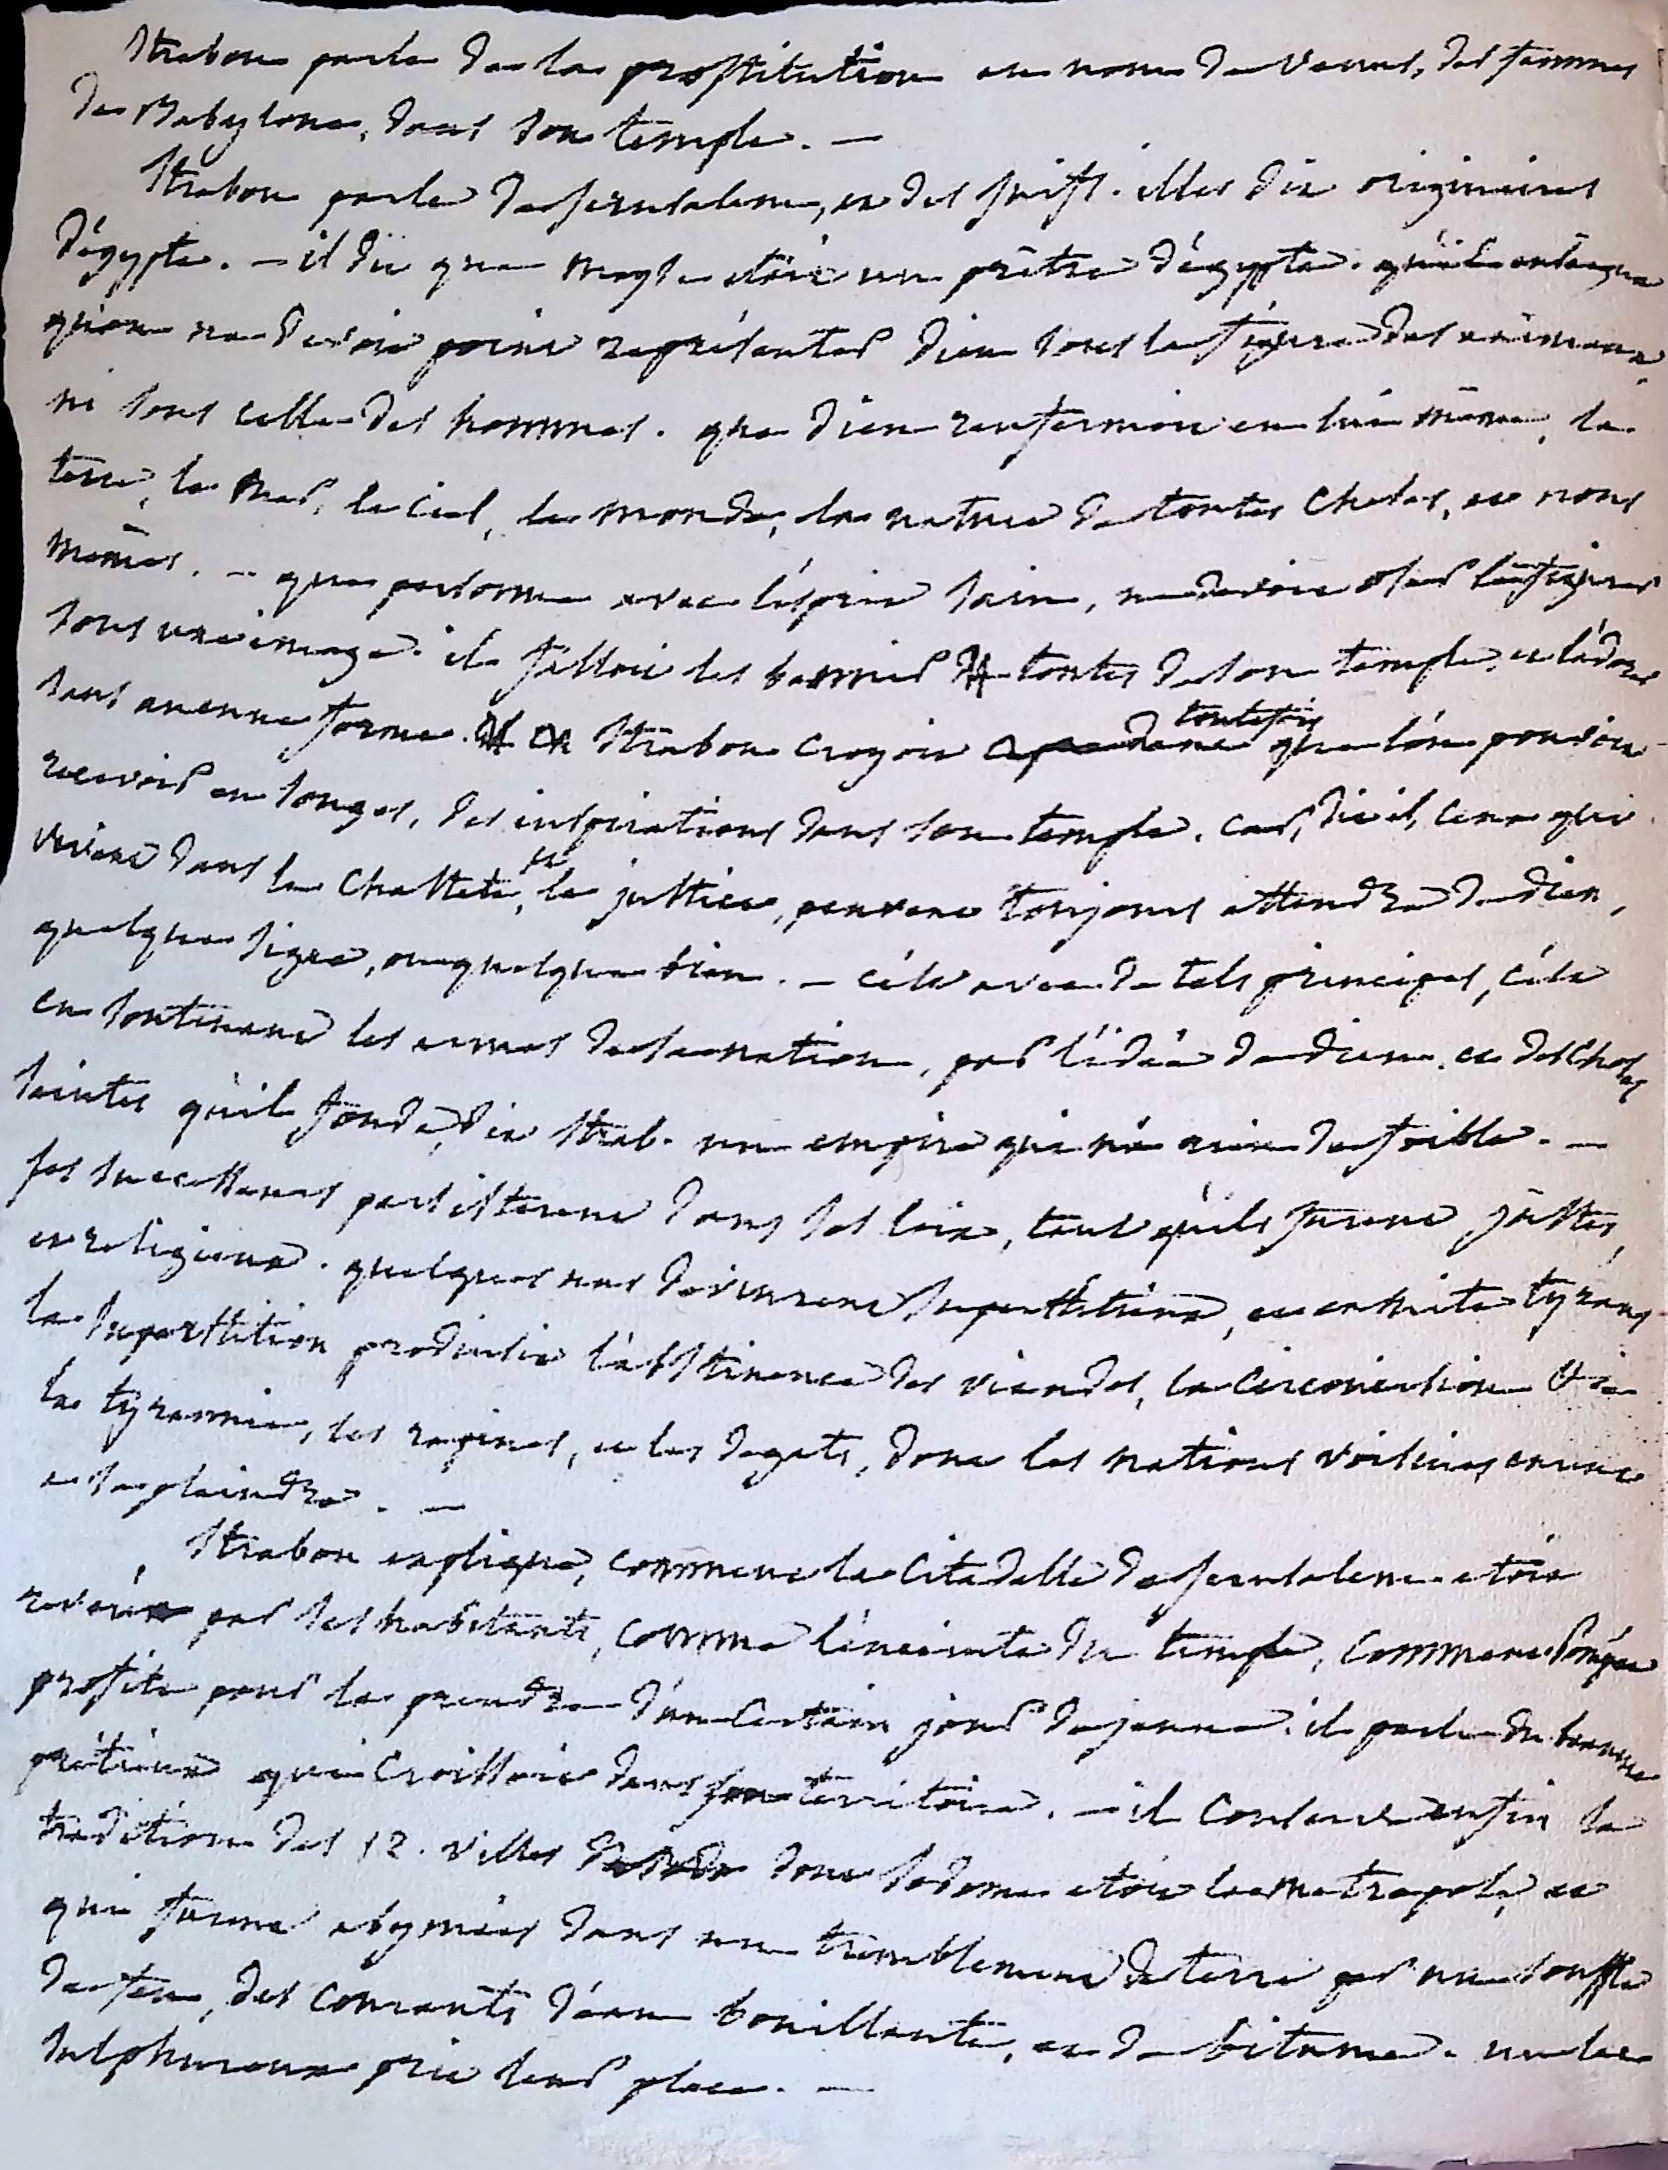 Strabon parle de la prostitution au nom de Venus, des femmes
de Babylone, dans son temple. —
Strabon parle de Jerusalem, et des juifs. il les dit originaires
d'égypte. — il dit que Moyse etoit un prêtre d'égypte. qu'il enseigna
qu'on ne devoit point représenter dieu sous la figure des animaux,
ni sous celle des hommes. que dieu renfermoit en lui même, la
terre, la mer, le ciel, le monde, la nature de toutes choses, et nous
mêmes. — que personne avec l'esprit sain, ne devoit oser le figurer
sous une image. il falloit les bannir toutes de son temple, et l'adorer
sans aucune forme. Strabon croyoit cependant toutefois que l'on pouvoit
recevoir en songes, des inspirations dans son temple. car, dit il, ceux qui
vivent dans la chasteté, et la justice, peuvent toujours attendre de dieu,
quelque signe, ou quelque bien. — c'est avec de tels principes, c'est
en soutenant les armes de sa nation, par l'idée de dieu, et des choses
saintes qu'il fonda, dit Strab. un empire qui n'a rien de foible. —
ses successeurs persisterent dans ses loix, tant qu'ils furent justes,
et religieux. quelques uns devinrent superstitieux, et ensuite tyrans
la superstition produisit l'abstinence des viandes, la circoncision &c.
la tyrannie, les rapines, et les degats, dont les nations voisines eurent
a se plaindre. —
Strabon explique, comment la citadelle de Jerusalem etoit
révérée par ses habitants, comme l'enceinte du temple, comment Pompée
profita pour la prendre d'un certain jour de jeune. il parle du baume
prétieux qui croissoit dans son territoire. — il conserve enfin la
tradition des 12. villes dont Sodome etoit la metropole, et
qui furent abymées dans un tremblement de terre par un souffle
de feu, des courants d'eau bouillante, et de bitume. un lac
sulphureux prit leur place. —